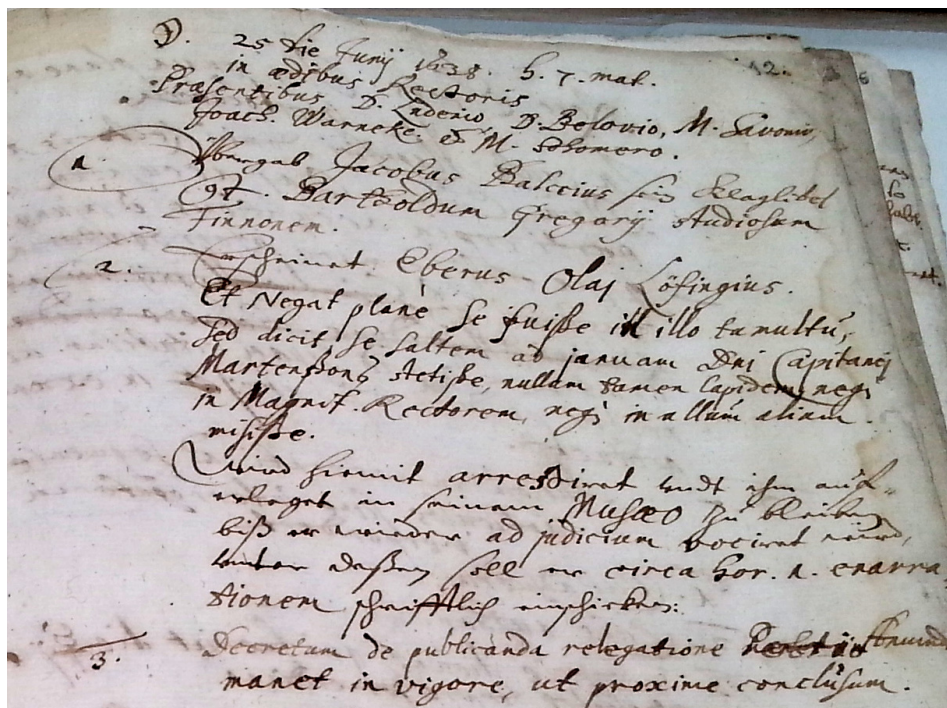 D. 25 die Junij 1638. h. 7. mat. 12.
in ædibus Rectoris
Præsentibus D. Luderio D. Belovio, M. Savonio,
Joach. Warneke & M. Schomero.
1. Übergab Jacobus Balccius sein Klaglibel
Gt. Bartholdum Gregorij studiosum
Finnonem.
2. Erscheinet Eberus Olaj Löfingius.
Et Negat planè se fuisse in illo tumultu,
sed dicit se saltem ad januam Dni Capitanej
Martenßons stetisse, nullum tamen lapidem neqꝫ
in Magnif. Rectorem neqꝫ in ullum alium
misisse.
Wird hiemit arrestiret undt ihm auf-
erleget in seinem Musæo zu bleiben
biß er wieder ad judicium vociret wird,
unter deßen soll er circa hor. 1. enarra
tionem schrifftlich einschicken:
3. Decretum de publicanda relegatione
manet in vigore, ut proximè conclusum.